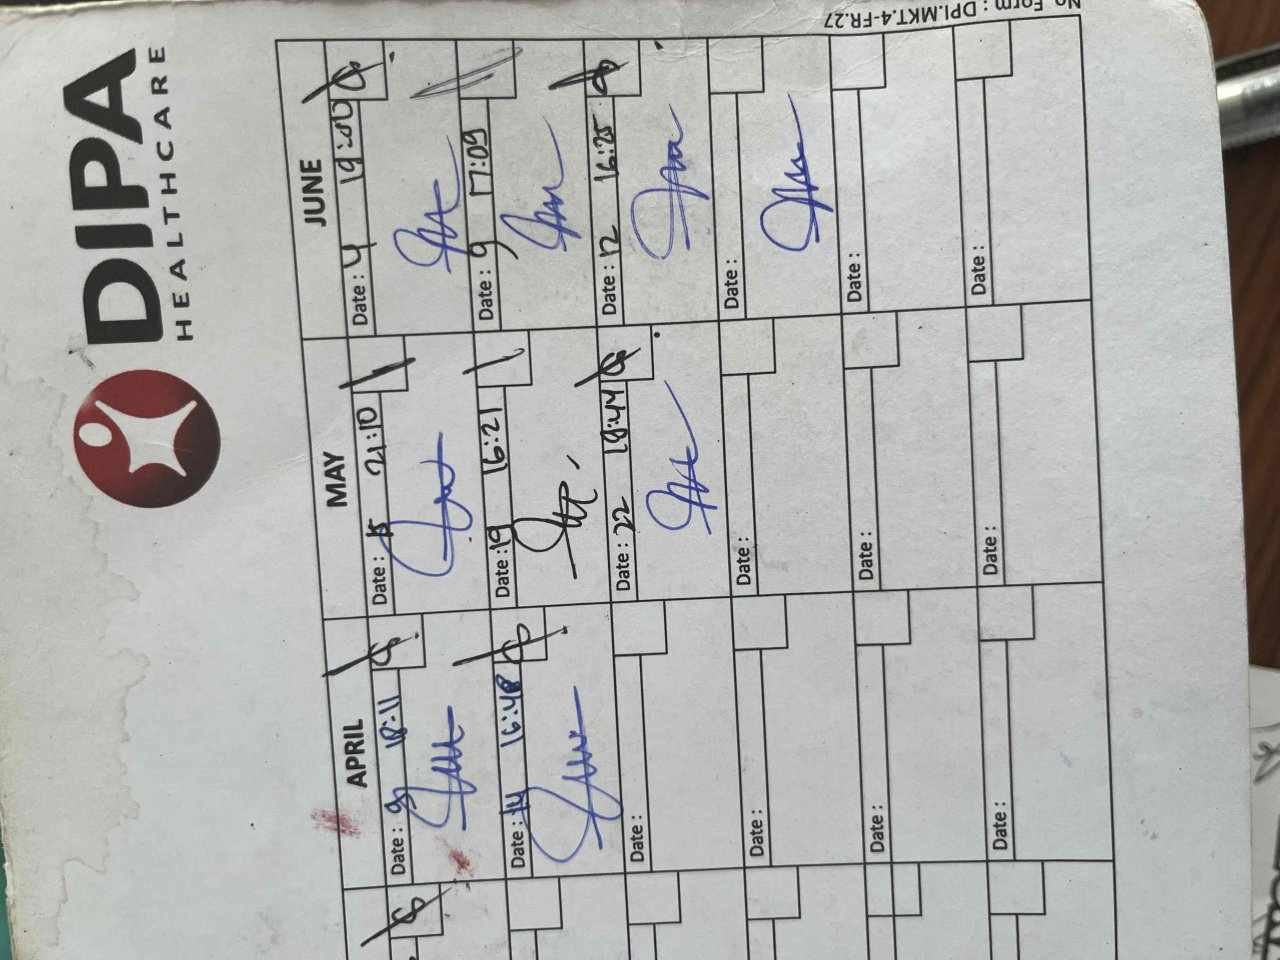 DIPA
HEALTHCARE
No Form : DPI.MKT.4-FR.27
APRIL MAY JUNE
Date : 9 18:11
Date : 15 21:10
Date : 4 19:00
Date : 14 16:48
Date : 19 16:21
Date : 9 17:09
Date :
Date : 22 18:44
Date : 12 16:25
Date :
Date :
Date :
Date :
Date :
Date :
Date :
Date :
Date :